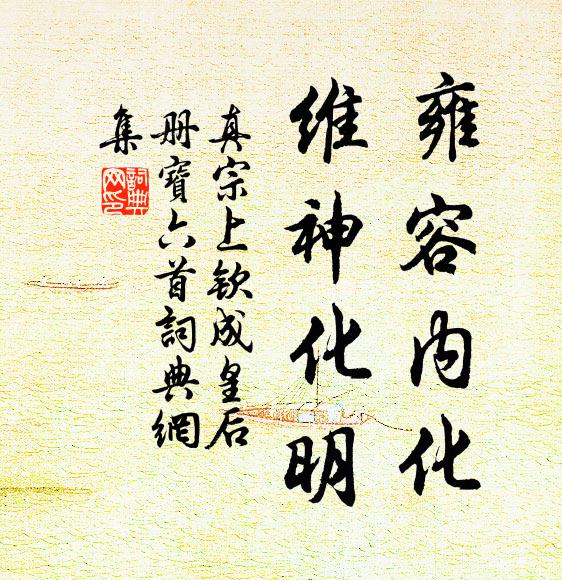 雍容内化
维神化明
真宗上钦成皇后
册寶六首詞典網
集
詞典
网印